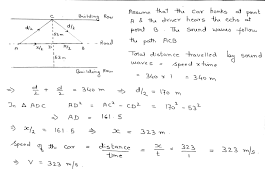 C Building Row
d/2 d/2
53m
A x/2 D x/2 B Road
53m
Building Row
Assume that the car honks at point
A & the driver hears the echo at
point B. The sound waves follow
the path ACB
Total distance travelled by sound
waves = speed x time
= 340 x 1 = 340 m
⇒ d/2 + d/2 = 340 m ⇒ d/2 = 170 m
In △ ADC AD² = AC² - CD² = 170² - 53²
⇒ AD = 161.5
⇒ x/2 = 161.5 ⇒ x = 323 m
Speed of the car = distance/time = x/t = 323/1 = 323 m/s
⇒ V = 323 m/s